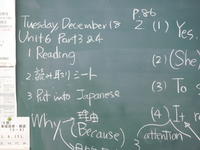 Tuesday, December 18
Unit 6 Part 3 & 4
1 Reading
2 読み取りシート
3 Put into Japanese
Why
理由
(Because)
P.86
2 (1) Yes,
(2) (She)
(3) To
(4) It
attention